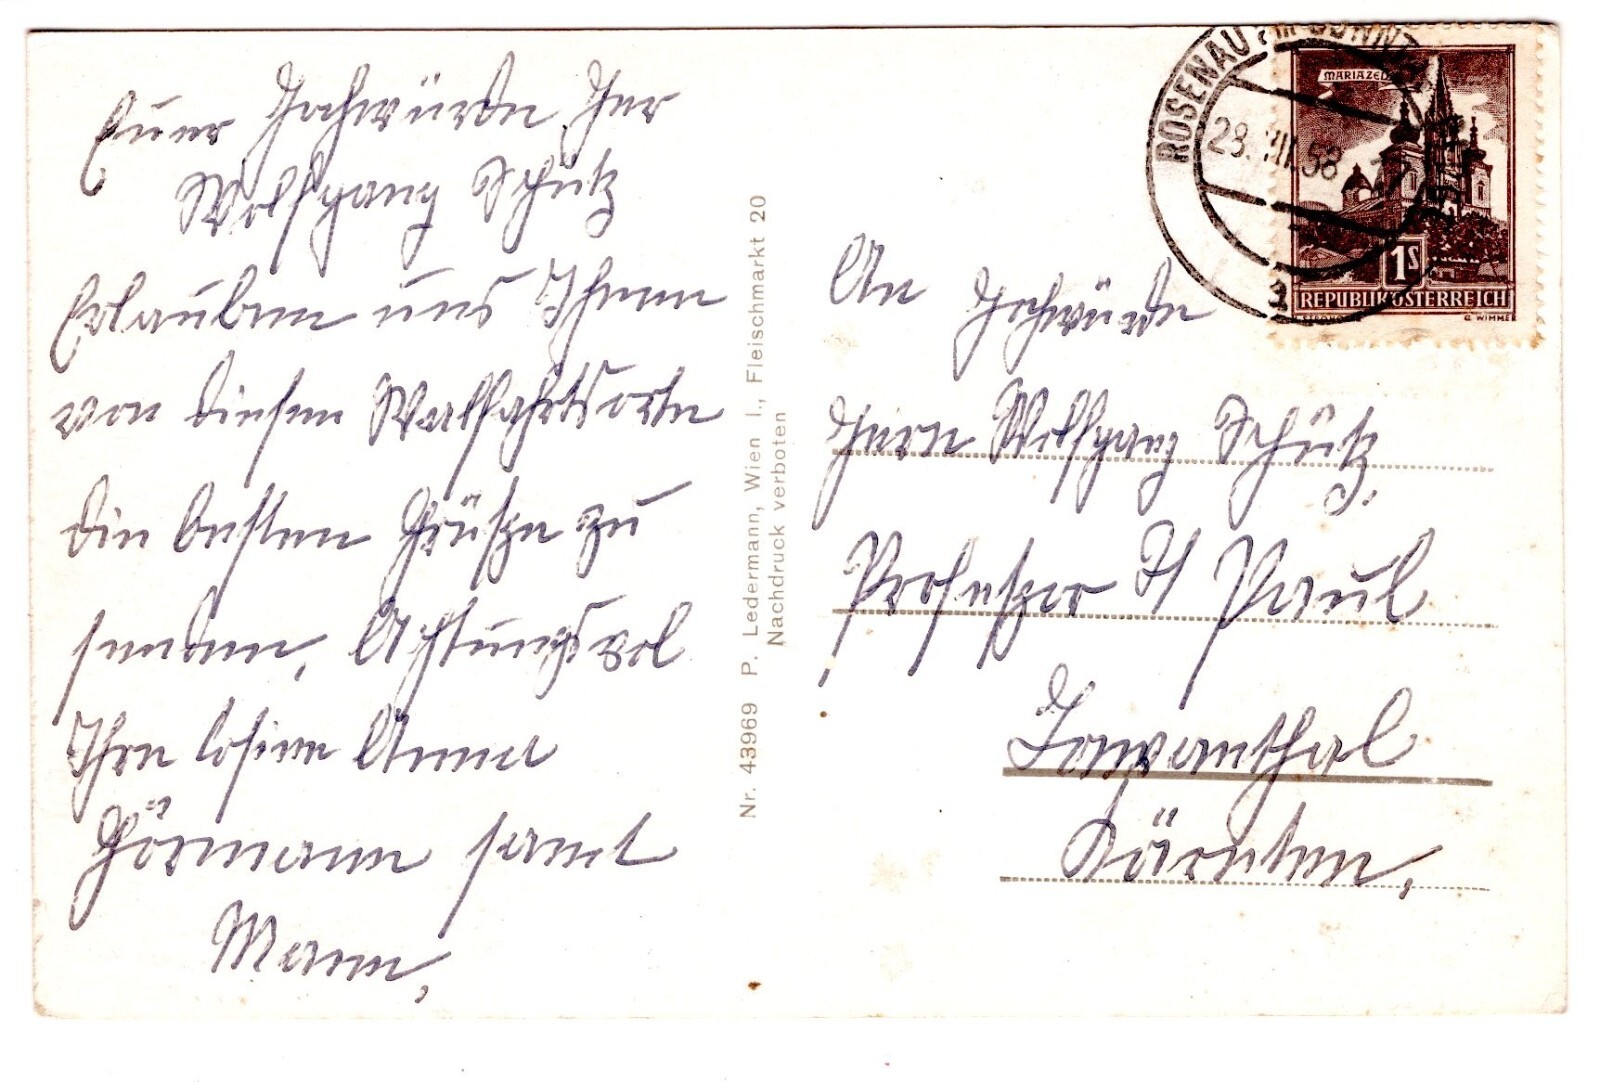 Euer Hochwürden Her
Wolfgang Schütz
Erlauben uns Ihnen
von diesen Walfahrtsorte
die besten Grüsze zu
senden, Achtungsvol
Ihre Anna
Hörmann samt
Mann,
Nr. 43969 P. Ledermann, Wien I., Fleischmarkt 20
Nachdruck verboten
ROSENAU
28. VIII. 58
a
MARIAZELL
1S
REPUBLIK ÖSTERREICH
G. WIMMER
An Hochwürden
Herrn Wolfgang Schütz,
Profeszor St Paul
Lawanthal
Kärnten,